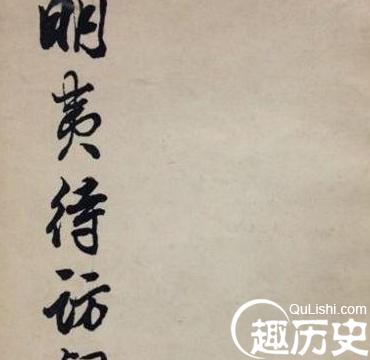 明夷待訪
QuLishi.com
趣历史